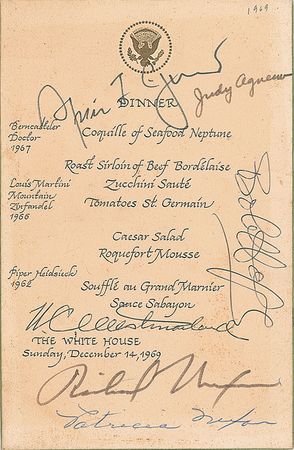 1969.
Judy Agnew
DINNER
Berncasteler
Doctor
1967
Coquille of Seafood Neptune
Roast Sirloin of Beef Bordelaise
Louis Martini
Mountain
Zinfandel
1966
Zucchini Sauté
Tomatoes St. Germain
Caesar Salad
Roquefort Mousse
Piper Heidsieck
1962
Soufflé au Grand Marnier
Sauce Sabayon
Bob Hope
W C Westmoreland
THE WHITE HOUSE
Sunday, December 14, 1969
Richard Nixon
Patricia Nixon